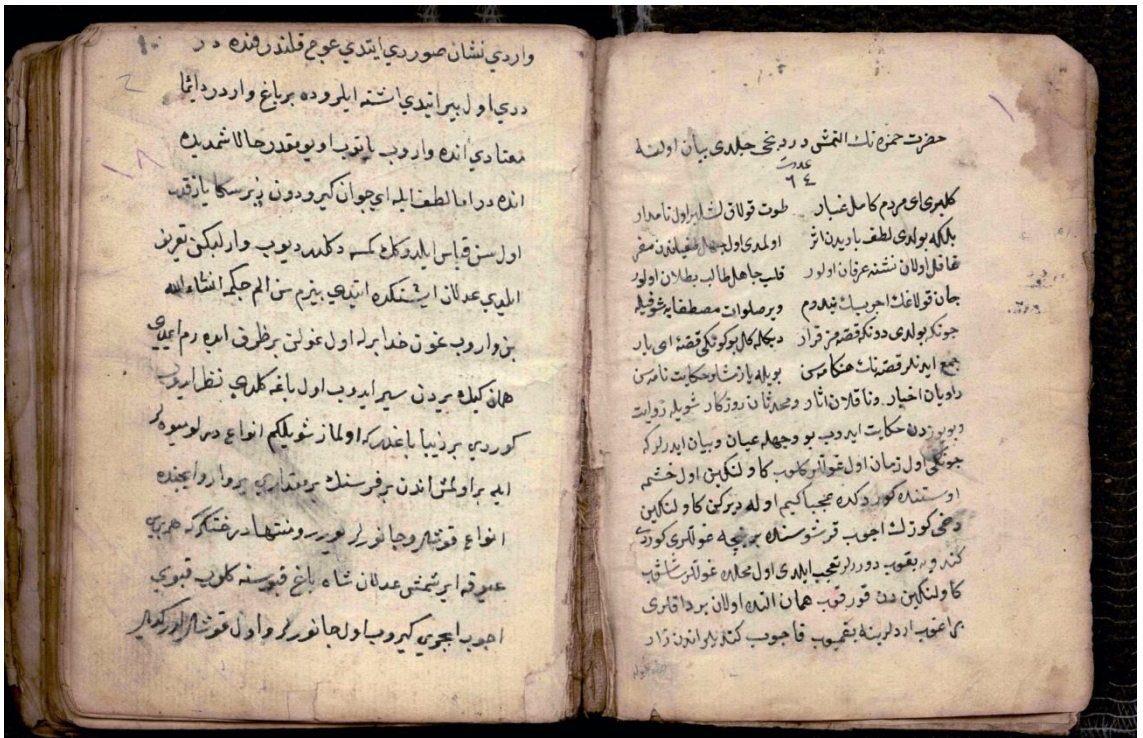 حضرت حمزه نك التمش دردنجی جلدی بیان اولنه
عدد
٦٤
كلبری ای مردم كامل عیار طوت قولاق اول نامدار
بلكه بولدی لطف بادیدن اثر اولمدی اول
غافل اولان تشنه عرفان اولور قلب جاهل طالب بطلان اولور
جان قولاغك اجوبك ویر صلوات مصطفایه شوقیله
چونكه بولدی دونكه قصه مز قرار دیكله كل بوكونكی قصه ای یار
جمع ایدنلر قصه نك هنكامه سن بویله یازمشلر حكایت نامه سن
راویان اخبار وناقلان اثار ومحدثان روزكار شویله روایت
وبویوزدن حكایت ایدوب بو وجهله عیان وبیان ایدرلر كه
چونكی اول زمان اول غوللر كلوب كاولنكین اول خشم
اوستنده كوردكده عجبا كیم اوله دیركن كاولنكین
دخی كوزك اجوب قرشوسنده بر نیچه غوللری كوردی
كندویه بقوب دوررلر تعجب ایلدی اول محلده غوللر شاشوب
كاولنكین دن قورقوب همان النده اولان
براغوب اردلرینه بقمیوب قاچوب كتدیلر اندن زار
١٠
٢
١٨
واردی نشان صوردی ایتدی عوج قلندر قنده در
دردی اول پیر ایتدی اشته ایلروده بر باغ واردر دائما
معتادی انده واروب یاتوب اویومقدر حالا شمدیده
انده در اما لطف ایله ای جوان كیرو دون سكا یازقدر
اول سن قیاس ایلدوكك كمسه دكلدر دیوب وارلیكن تعریف
ایلدی عدلان ایشتدكده ایتدی بنم سن الم چكمه انشاءالله
بن واروب عون خدا برله اول غولی بر ظرف ایده رم
همان كیك بردن سیر ایدوب اول باغه كلدی نظر ایدوب
كوردی بر زیبا باغدر كه اولماز شویلكم انواع درلو میوه لر
ایله بر اولمش اندن بر فرسنك مقداری یر وار وایچنده
انواع قوشلر وجانورلر یورر ومنتها درختلر كه هر بری
عیوقه ایرشمش عدلان شاه باغ قپوسنه كلوب قپوی
اجوب ایچری كیروب اول جانورلر واول قوشلر